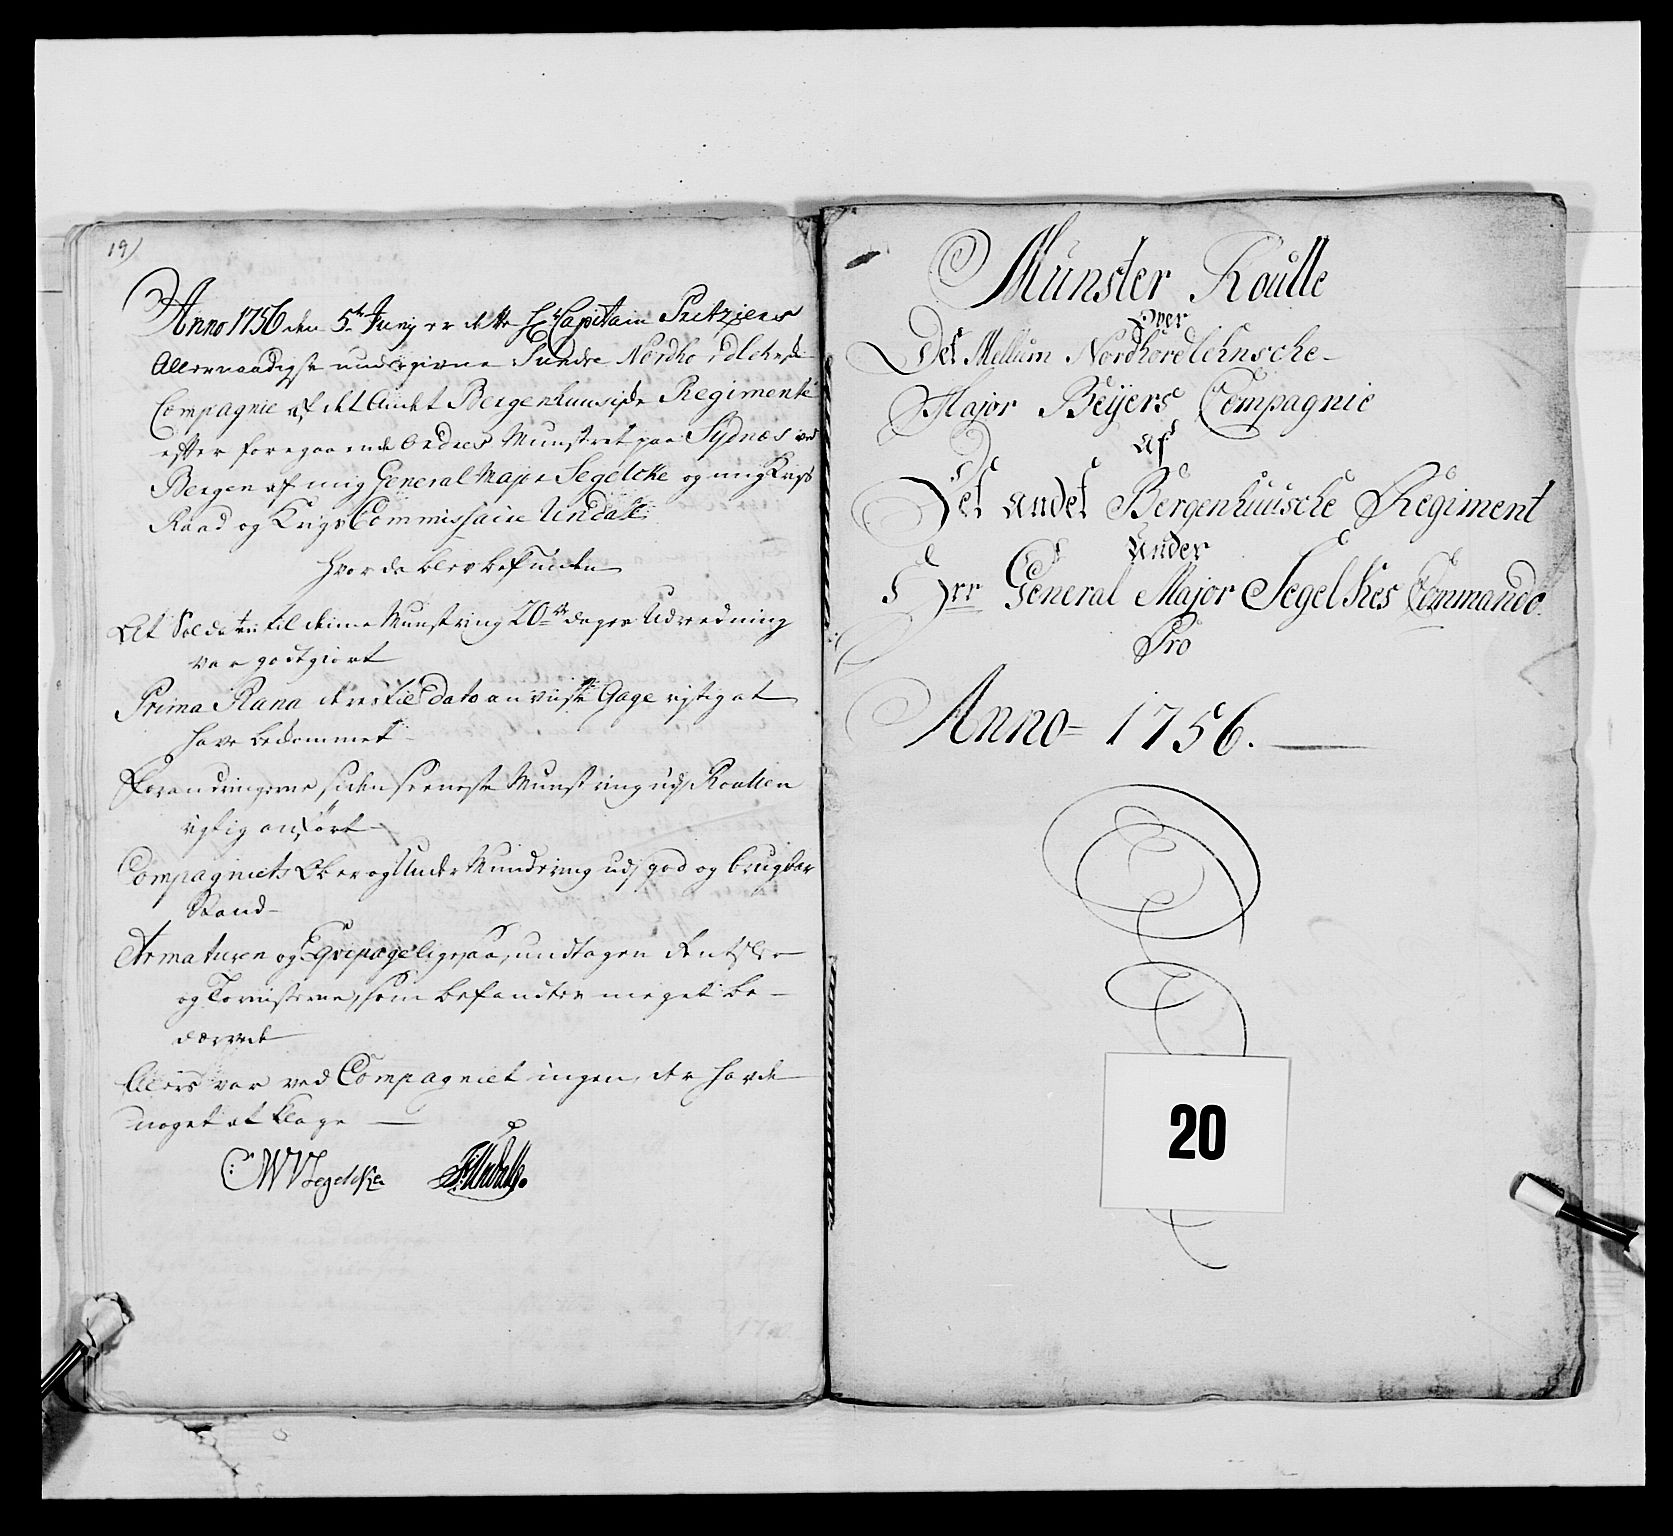 19)
Anno 1756 den 5te Junij er dette Hr Capitain Pritziers
Allernaadigst undergivne Sundre Nordhordlehnde
Compagnie af det Andet Bergenhuusiske Regimente
efter foregaaende Ordres Munstret paa Sydnes ved
Bergen af mig General Major Segelcke og mig Krigs
Raad og Krigs Commissaire Undall
Hvor da blev befunden
At Soldaten til denne Munstring 20de dages Udredning
var godtgiort
Prima Plana deres til Dato anviiste Gage rigtig at
have bekommet
Forandringerne siden seeneste Munstring udj Roullen
rigtig anført
Compagniets Over og Under Mundering udj god og brugbar
Stand
Armaturen og Eqvipage ligesaa, undtagen
og Tornisterne, som befandtes meget be-
dærvede
Ellers var ved Compagniet ingen, der havde
noget at klage
CWV Segelcke Undall.
Munster Roulle
Over
Det Mellum Nordhordlehnsche
Major Beÿers Compagnie
af
Det andet Bergenhuusche Regiment
Under
Herr General Major Segelkes Commando.
Pro
Anno 1756.
20